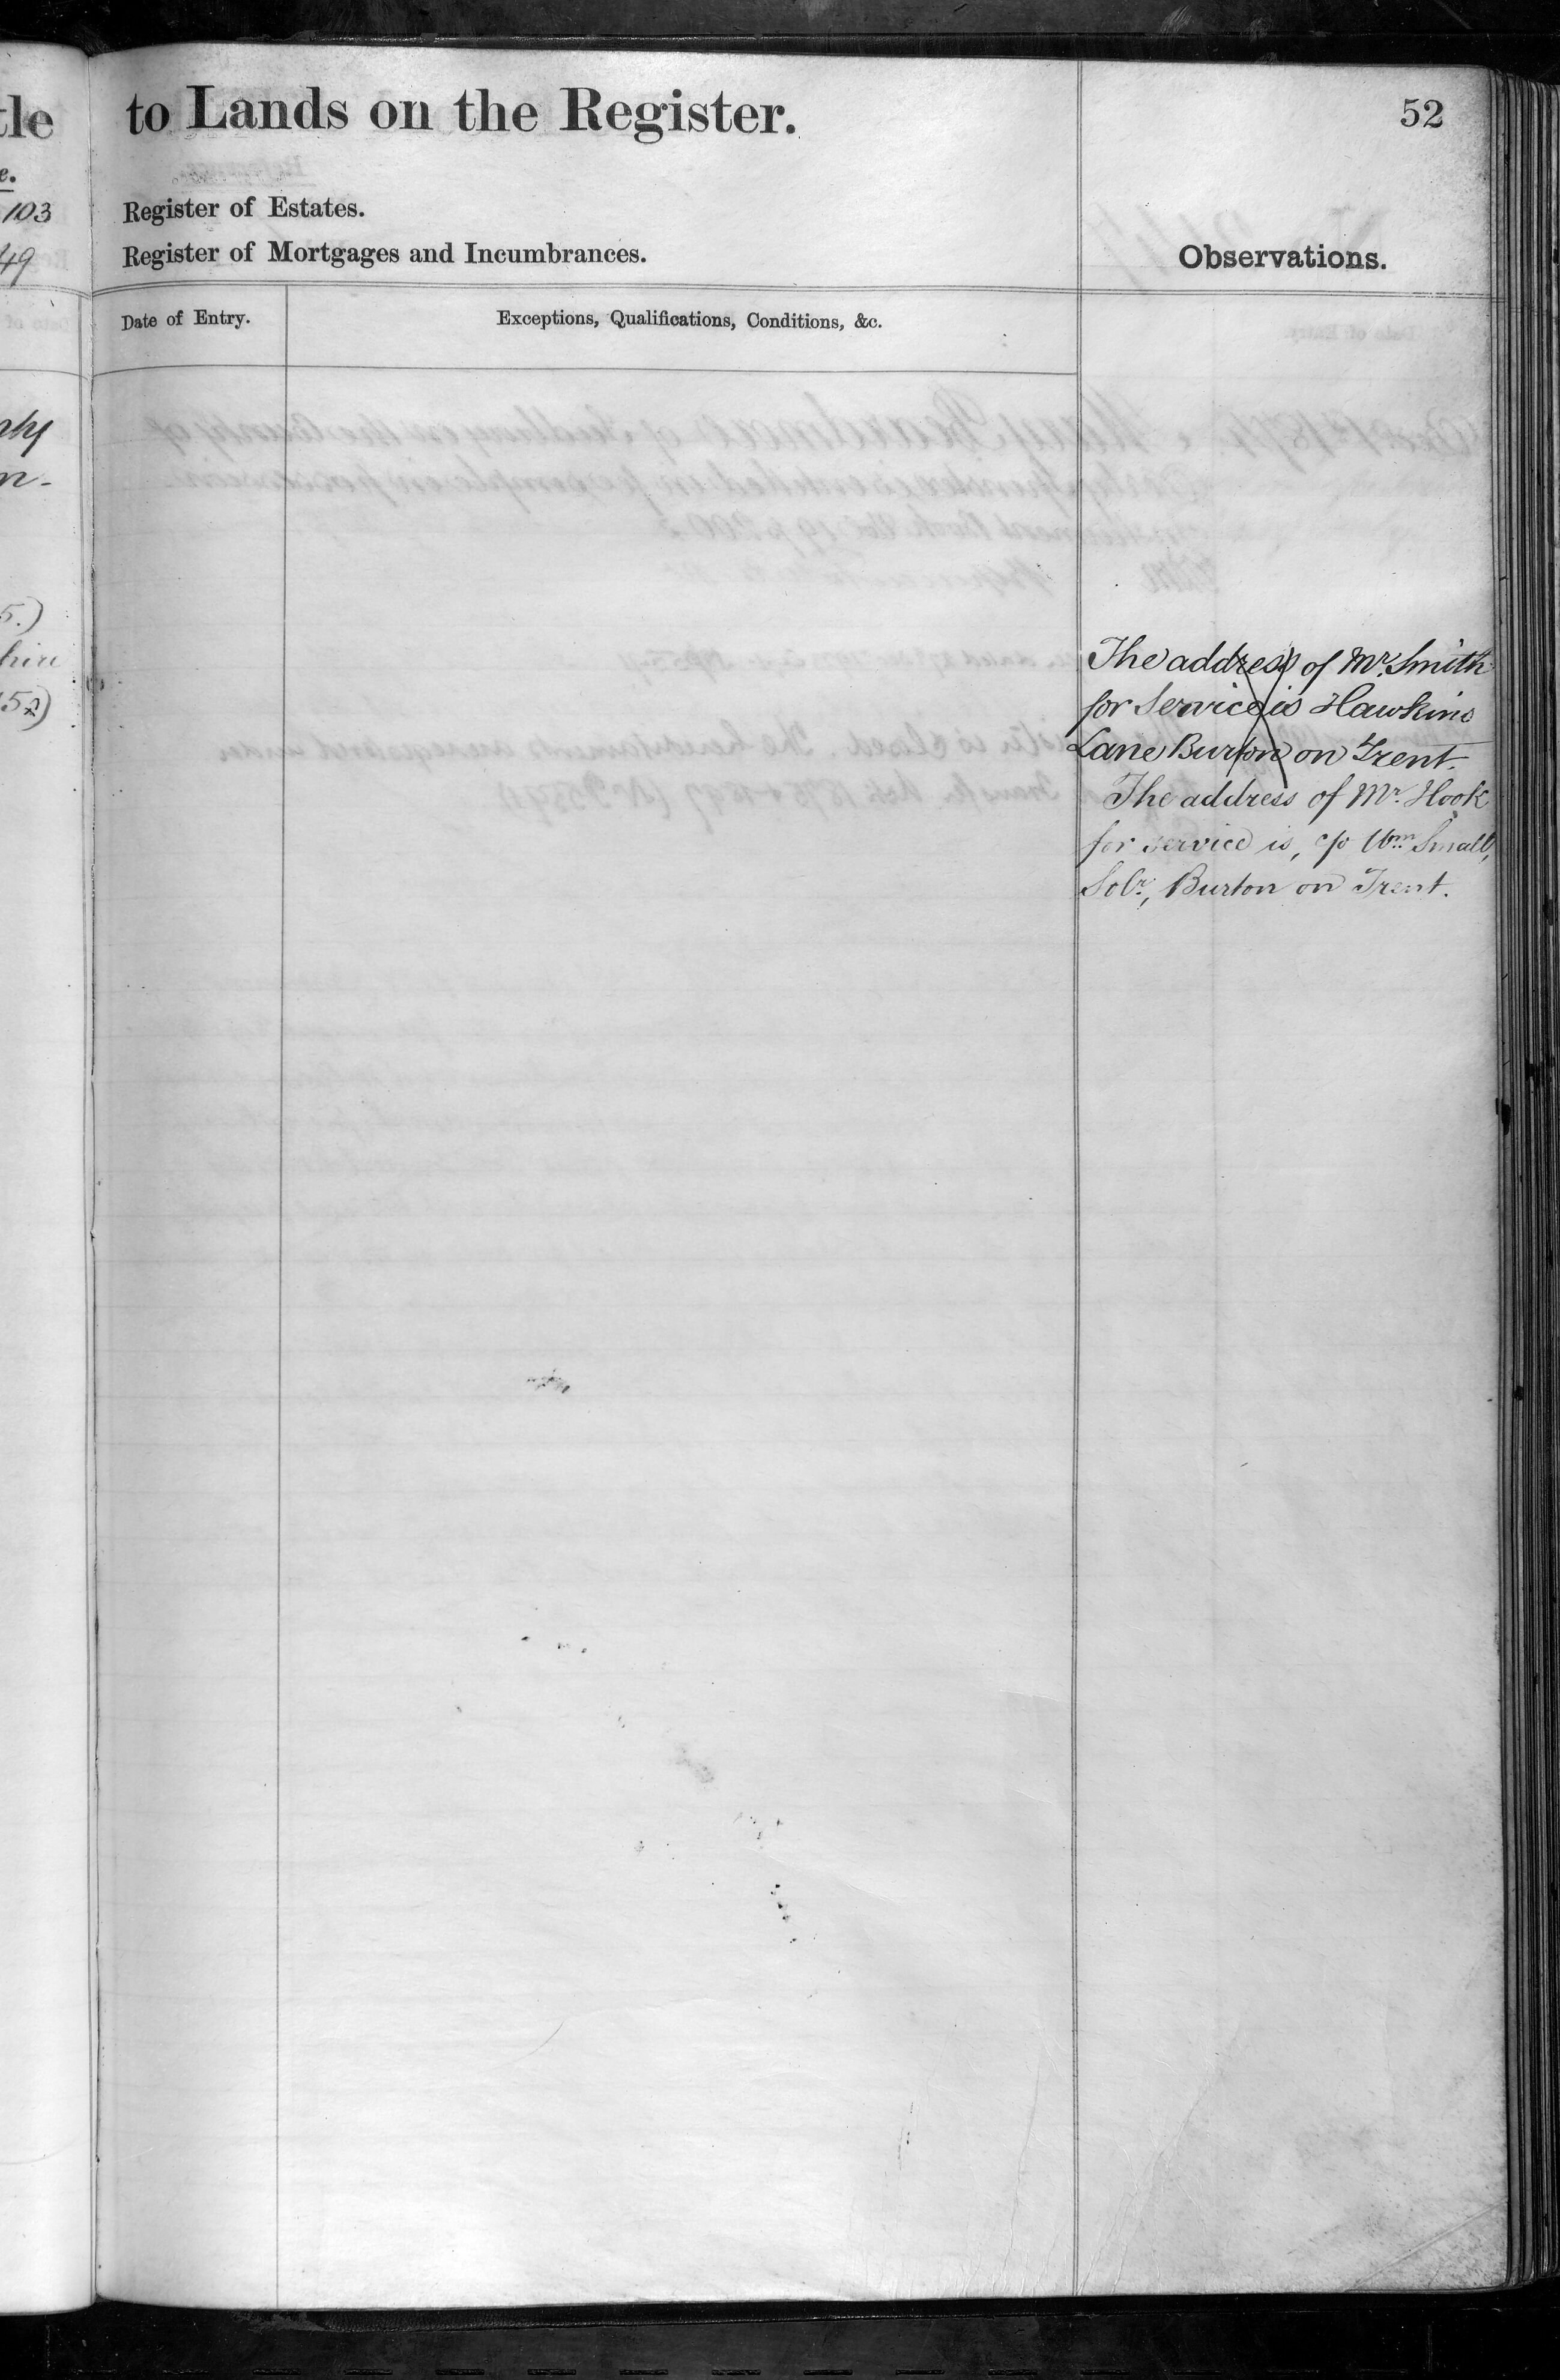 tle
to Lands on the Register.
52
e.
103
Register of Estates.
49
Register of Mortgages and Incumbrances.
Observations.
Date of Entry.
Exceptions, Qualifications, Conditions, &c.
n-
5.)
hire
52)
The address of Mr. Smith
for Service is Hawkins
Lane Burton on Trent.
The address of Mr. Hook
for service is, c/o Wm. Small,
Solr., Burton on Trent.